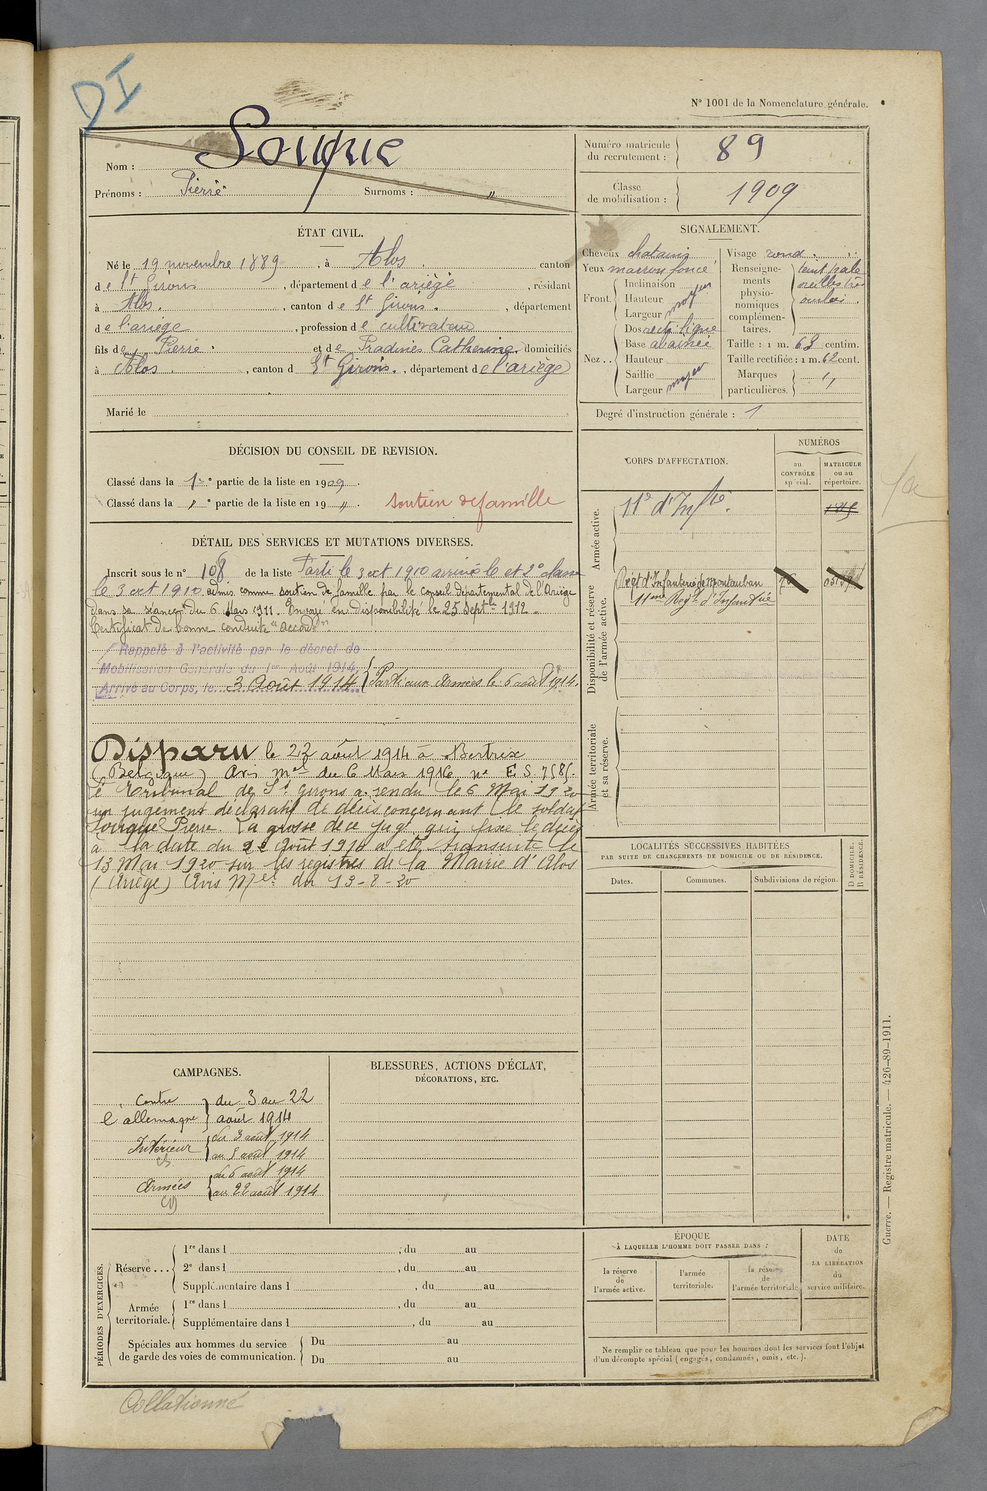 DI
N° 1001 de la Nomenclature générale.
Nom : Souque
Prénoms : Pierre Surnoms : "
Numéro matricule du recrutement : 89
Classe de mobilisation : 1909
ÉTAT CIVIL.
Né le 19 novembre 1889, à Alos, canton
de St Girons, département de l'ariège, résidant
à Alos, canton de St Girons, département
de l'ariege, profession de cultivateur
fils de Pierre et de Pradines Catherine, domiciliés
à Alos, canton d St Girons, département de l'ariège
Marié le
SIGNALEMENT.
Cheveux chatains
Yeux marron foncé
Front. Inclinaison
Hauteur moyen
Largeur
Nez.. Dos recti ligne
Base
Hauteur
Saillie
Largeur moyen
Visage rond
Renseignements physionomiques complémentaires. teint pale
Taille : 1 m. 63 centim.
Taille rectifiée : 1 m. 62 cent.
Marques particulières. "
Degré d'instruction générale : 1
DÉCISION DU CONSEIL DE REVISION.
Classé dans la 1re partie de la liste en 1909.
Classé dans la " e partie de la liste en 19 ". soutien de famille
DÉTAIL DES SERVICES ET MUTATIONS DIVERSES.
Inscrit sous le n° 108 de la liste Parti le 3 oct 1910 arrivé le et 2e classe
le 3 oct 1910 admis comme soutien de famille par le conseil départemental de l'Ariège
dans sa séance du 6 Mars 1911. Envoyé en disponibilité le 25 Septe 1912.
Certificat de bonne conduite "accordé".
Rappelé à l'activité par le décret de
Mobilisation Générale du 1er Août 1914.
Arrivé au Corps, le 3 Août 1914 Parti aux Armées le 6 août 1914.
Disparu le 22 août 1914 à Bertrix
(Belgique) Avis mel du 6 Mars 1916 n° E.S. 7585.
Le Tribunal de St Girons a rendu le 6 Mai 1920
un jugement déclaratif de décès concernant le soldat
Souque Pierre. La grosse de ce jug. qui fixe le décès
à la date du 22 Août 1914 a été transcrite le
13 Mai 1920 sur les registres de la Mairie d'Alos
(Ariège) Avis Mel du 13-8-20
CORPS D'AFFECTATION.
NUMÉROS
au CONTRÔLE spécial.
MATRICULE ou au répertoire.
Armée active.
11e d'Infie
Disponibilité et réserve de l'armée active.
Régt d'Infanterie de Montauban
11me Régt d'Infanterie
Armée territoriale et sa réserve.
LOCALITÉS SUCCESSIVES HABITÉES
PAR SUITE DE CHANGEMENTS DE DOMICILE OU DE RÉSIDENCE.
Dates. Communes. Subdivisions de région. D DOMICILE. R RÉSIDENCE.
CAMPAGNES.
Contre l'allemagne du 3 au 22 août 1914
Intérieur du 3 août 1914
au 5 août 1914
Armées du 6 août 1914
au 22 août 1914
BLESSURES, ACTIONS D'ÉCLAT,
DÉCORATIONS, ETC.
PÉRIODES D'EXERCICES.
Réserve... 1re dans l ; du au
2e dans l , du au
Supplémentaire dans l , du au
Armée territoriale. 1re dans l , du au
Supplémentaire dans l , du au
Spéciales aux hommes du service de garde des voies de communication. Du au
Du au
ÉPOQUE
À LAQUELLE L'HOMME DOIT PASSER DANS :
la réserve de l'armée active.
l'armée territoriale.
la réserve de l'armée territoriale
DATE de LA LIBÉRATION du service militaire.
Ne remplir ce tableau que pour les hommes dont les services font l'objet
d'un décompte spécial (engagés, condamnés, omis, etc.).
Guerre. — Registre matricule. — 426-89-1911.
Collationné